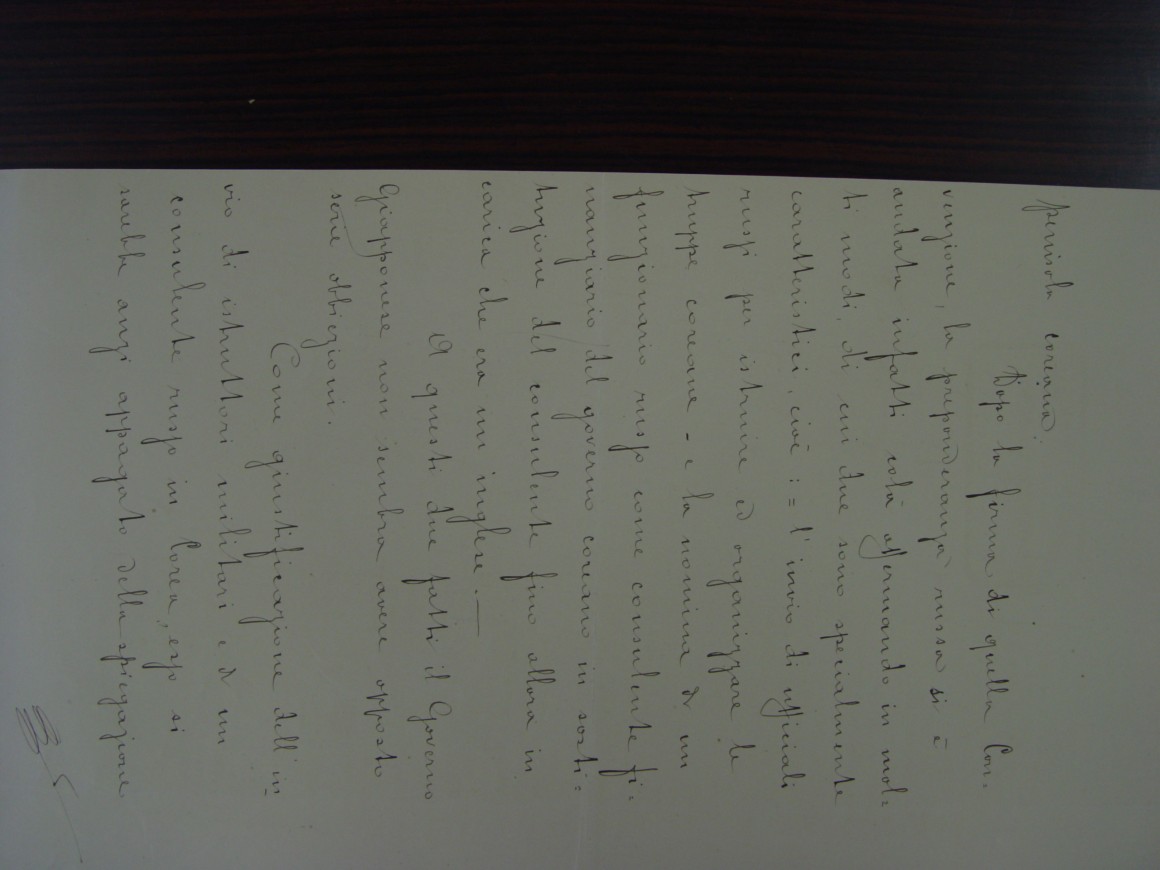 penisola coreana.
Dopo la firma di quella Con=
venzione, la preponderanza russa si è
andata infatti colà affermando in mol=
ti modi, di cui due sono specialmente
caratteristici, cioè := l'invio di ufficiali
russi per istruire ed organizzare le
truppe coreane - e la nomina di un
funzionario russo come consulente fi=
nanziario del governo coreano in sosti=
tuzione del consulente fino allora in
carica che era un inglese. —
A questi due fatti il Governo
Giapponese non sembra avere opposto
serie obbiezioni.
Come giustificazione dell'in=
vio di istruttori militari e di un
consulente russo in Corea, esso si
sarebbe anzi appagato della spiegazione